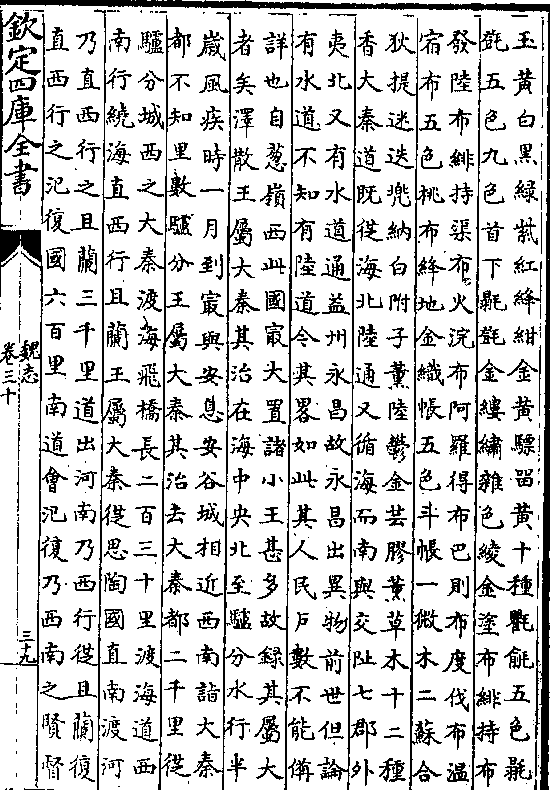 玉黄白黒綠紫紅絳紺金黄縹留黄十種氍毹五色毾
㲪五色九色首下毾㲪金縷繡雜色綾金塗布緋持布
發陸布緋持渠布火浣布阿羅得布巴則布度伐布温
宿布五色桃布絳地金織帳五色斗帳一微木二蘇合
狄提迷迭兜納白附子薰陸鬱金芸膠薰草木十二種
香大秦道既從海北陸通又循海而南與交阯七郡外
夷北又有水道通益州永昌故永昌出異物前世但論
有水道不知有陸道今其畧如此其人民戶數不能備
詳也自葱嶺西此國㝡大置諸小王甚多故録其屬大
者矣澤散王屬大秦其治在海中央北至驢分水行半
歲風疾時一月到㝡與安息安谷城相近西南詣大秦
都不知里數驢分王屬大秦其治去大秦都二千里從
驢分城西之大秦渡海飛橋長二百三十里渡海道西
南行繞海直西行且蘭王屬大秦從思陶國直南渡河
乃直西行之且蘭三千里道出河南乃西行從且蘭復
直西行之汜復國六百里南道會汜復乃西南之賢督
欽定四庫全書
魏志
卷三十
三十九